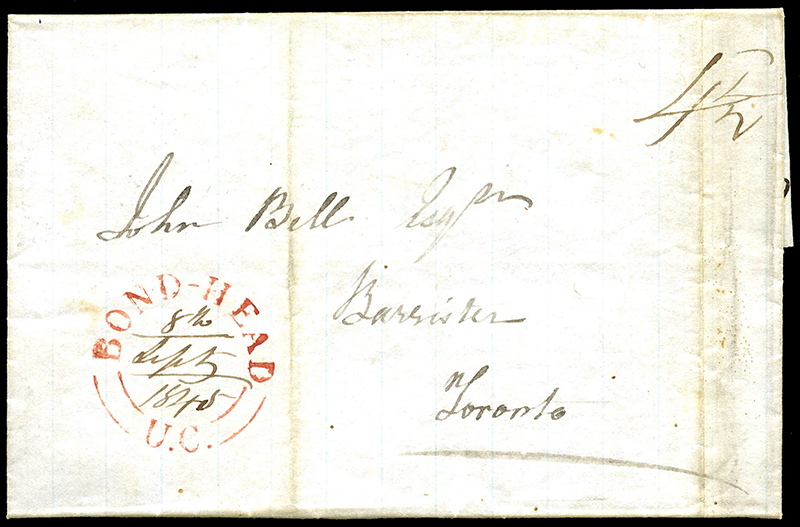 4½
John Bell Esqre
Barrister
Toronto
BOND-HEAD
8th
Septr
1845
U.C.